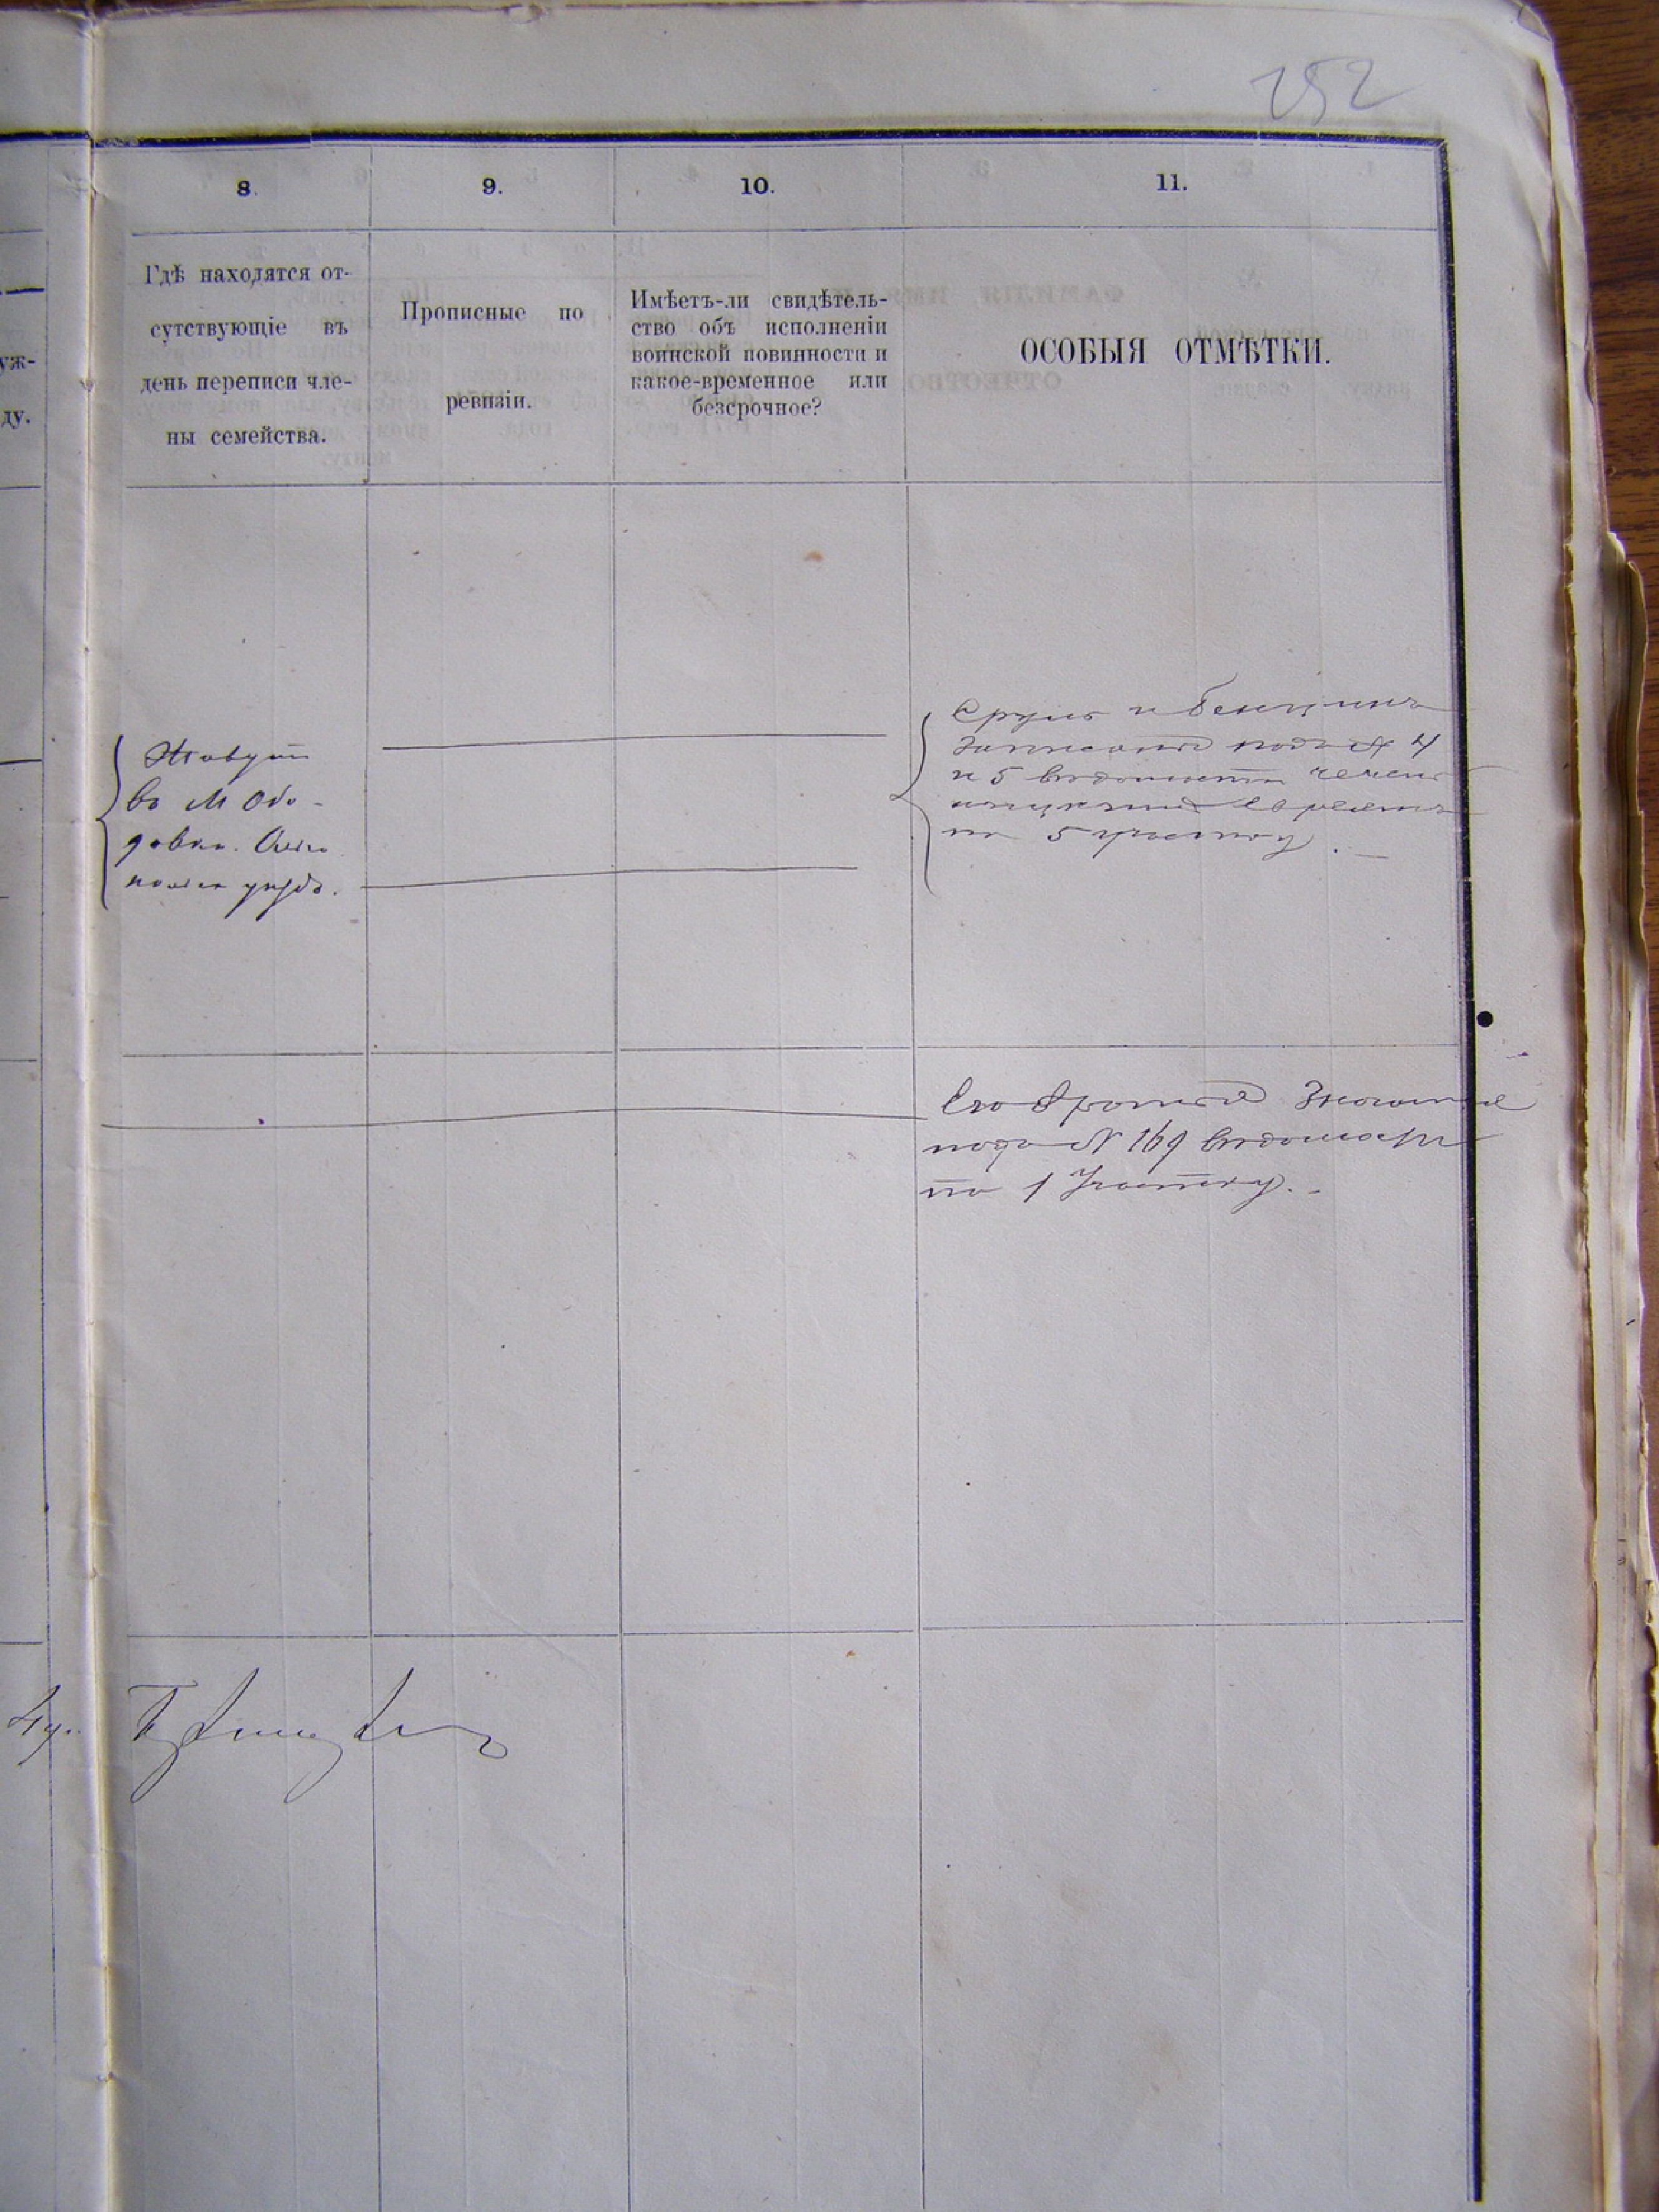 252
8.
9.
10.
11.
Гдѣ находятся от-
сутствующіе въ
день переписи чле-
ны семейства.
Прописные по
ревизіи.
Имѣетъ-ли свидѣтель-
ство объ исполненіи
воинской повинности и
какое-временное или
безсрочное?
ОСОБЫЯ ОТМѢТКИ.
уж-
ду.
Живутъ
въ М Обо-
довкѣ. Оль
уѣзд.
Сруль и Бенционъ
записаны подъ № 4
и 5 вѣдомости
евреямъ
по 5 участку.
Его братья значатся
подъ № 169 вѣдомости
по 1 Участку.